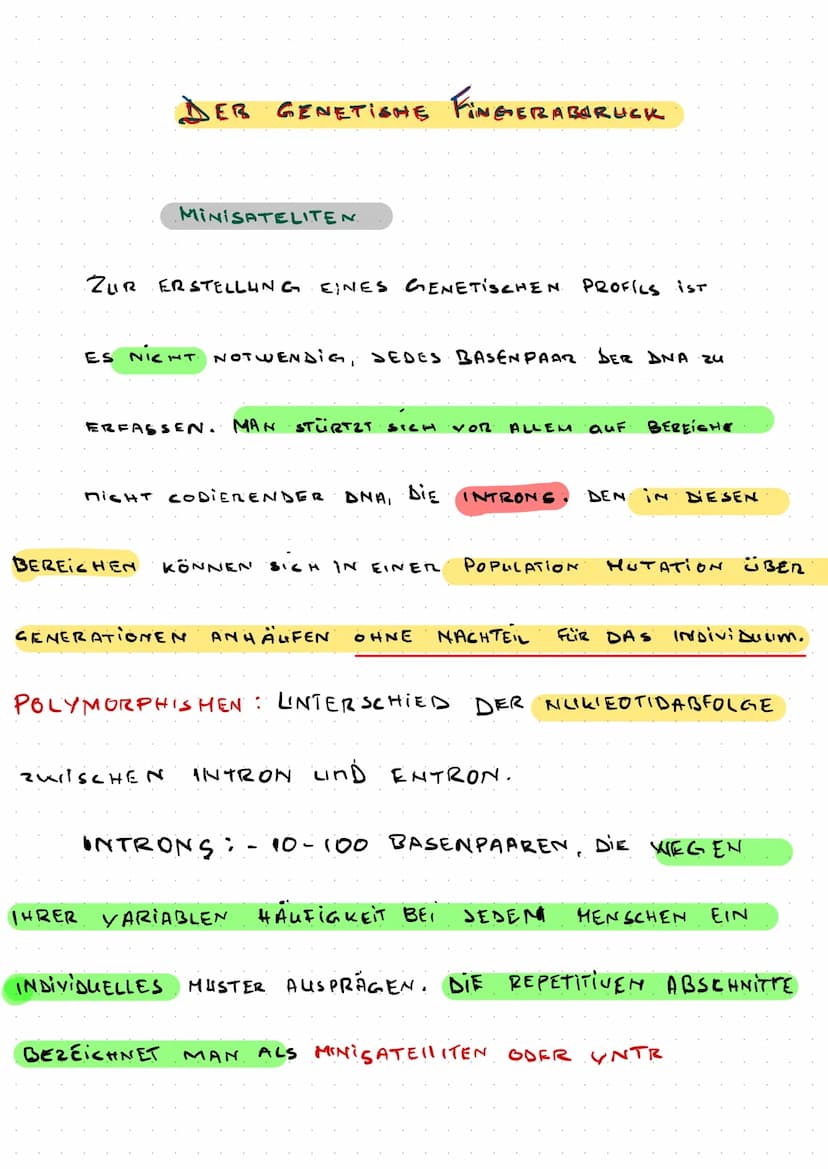 DER GENETISHE FINGERABDRUCK
MINISATELITEN
ZUR ERSTELLUNG EINES GENETISCHEN PROFILS IST
ES NICHT NOTWENDIG, JEDES BASENPAAR DER DNA ZU
ERFASSEN. MAN STÜRTZT SICH VOR ALLEM AUF BEREICHE
NICHT CODIERENDER DNA, DIE INTRONS. DEN IN DIESEN
BEREICHEN KÖNNEN SICH IN EINER POPULATION MUTATION ÜBER
GENERATIONEN ANHÄUFEN OHNE NACHTEIL FÜR DAS INDIVIDUUM.
POLYMORPHISMEN : UNTERSCHIED DER NUKLEOTIDABFOLGE
ZWISCHEN INTRON UND ENTRON.
INTRONS : - 10 - 100 BASENPAAREN, DIE WEGEN
IHRER VARIABLEN HÄUFIGKEIT BEI JEDEM MENSCHEN EIN
INDIVIDUELLES MUSTER AUSPRÄGEN. DIE REPETITIVEN ABSCHNITTE
BEZEICHNET MAN ALS MINISATELLITEN ODER VNTR